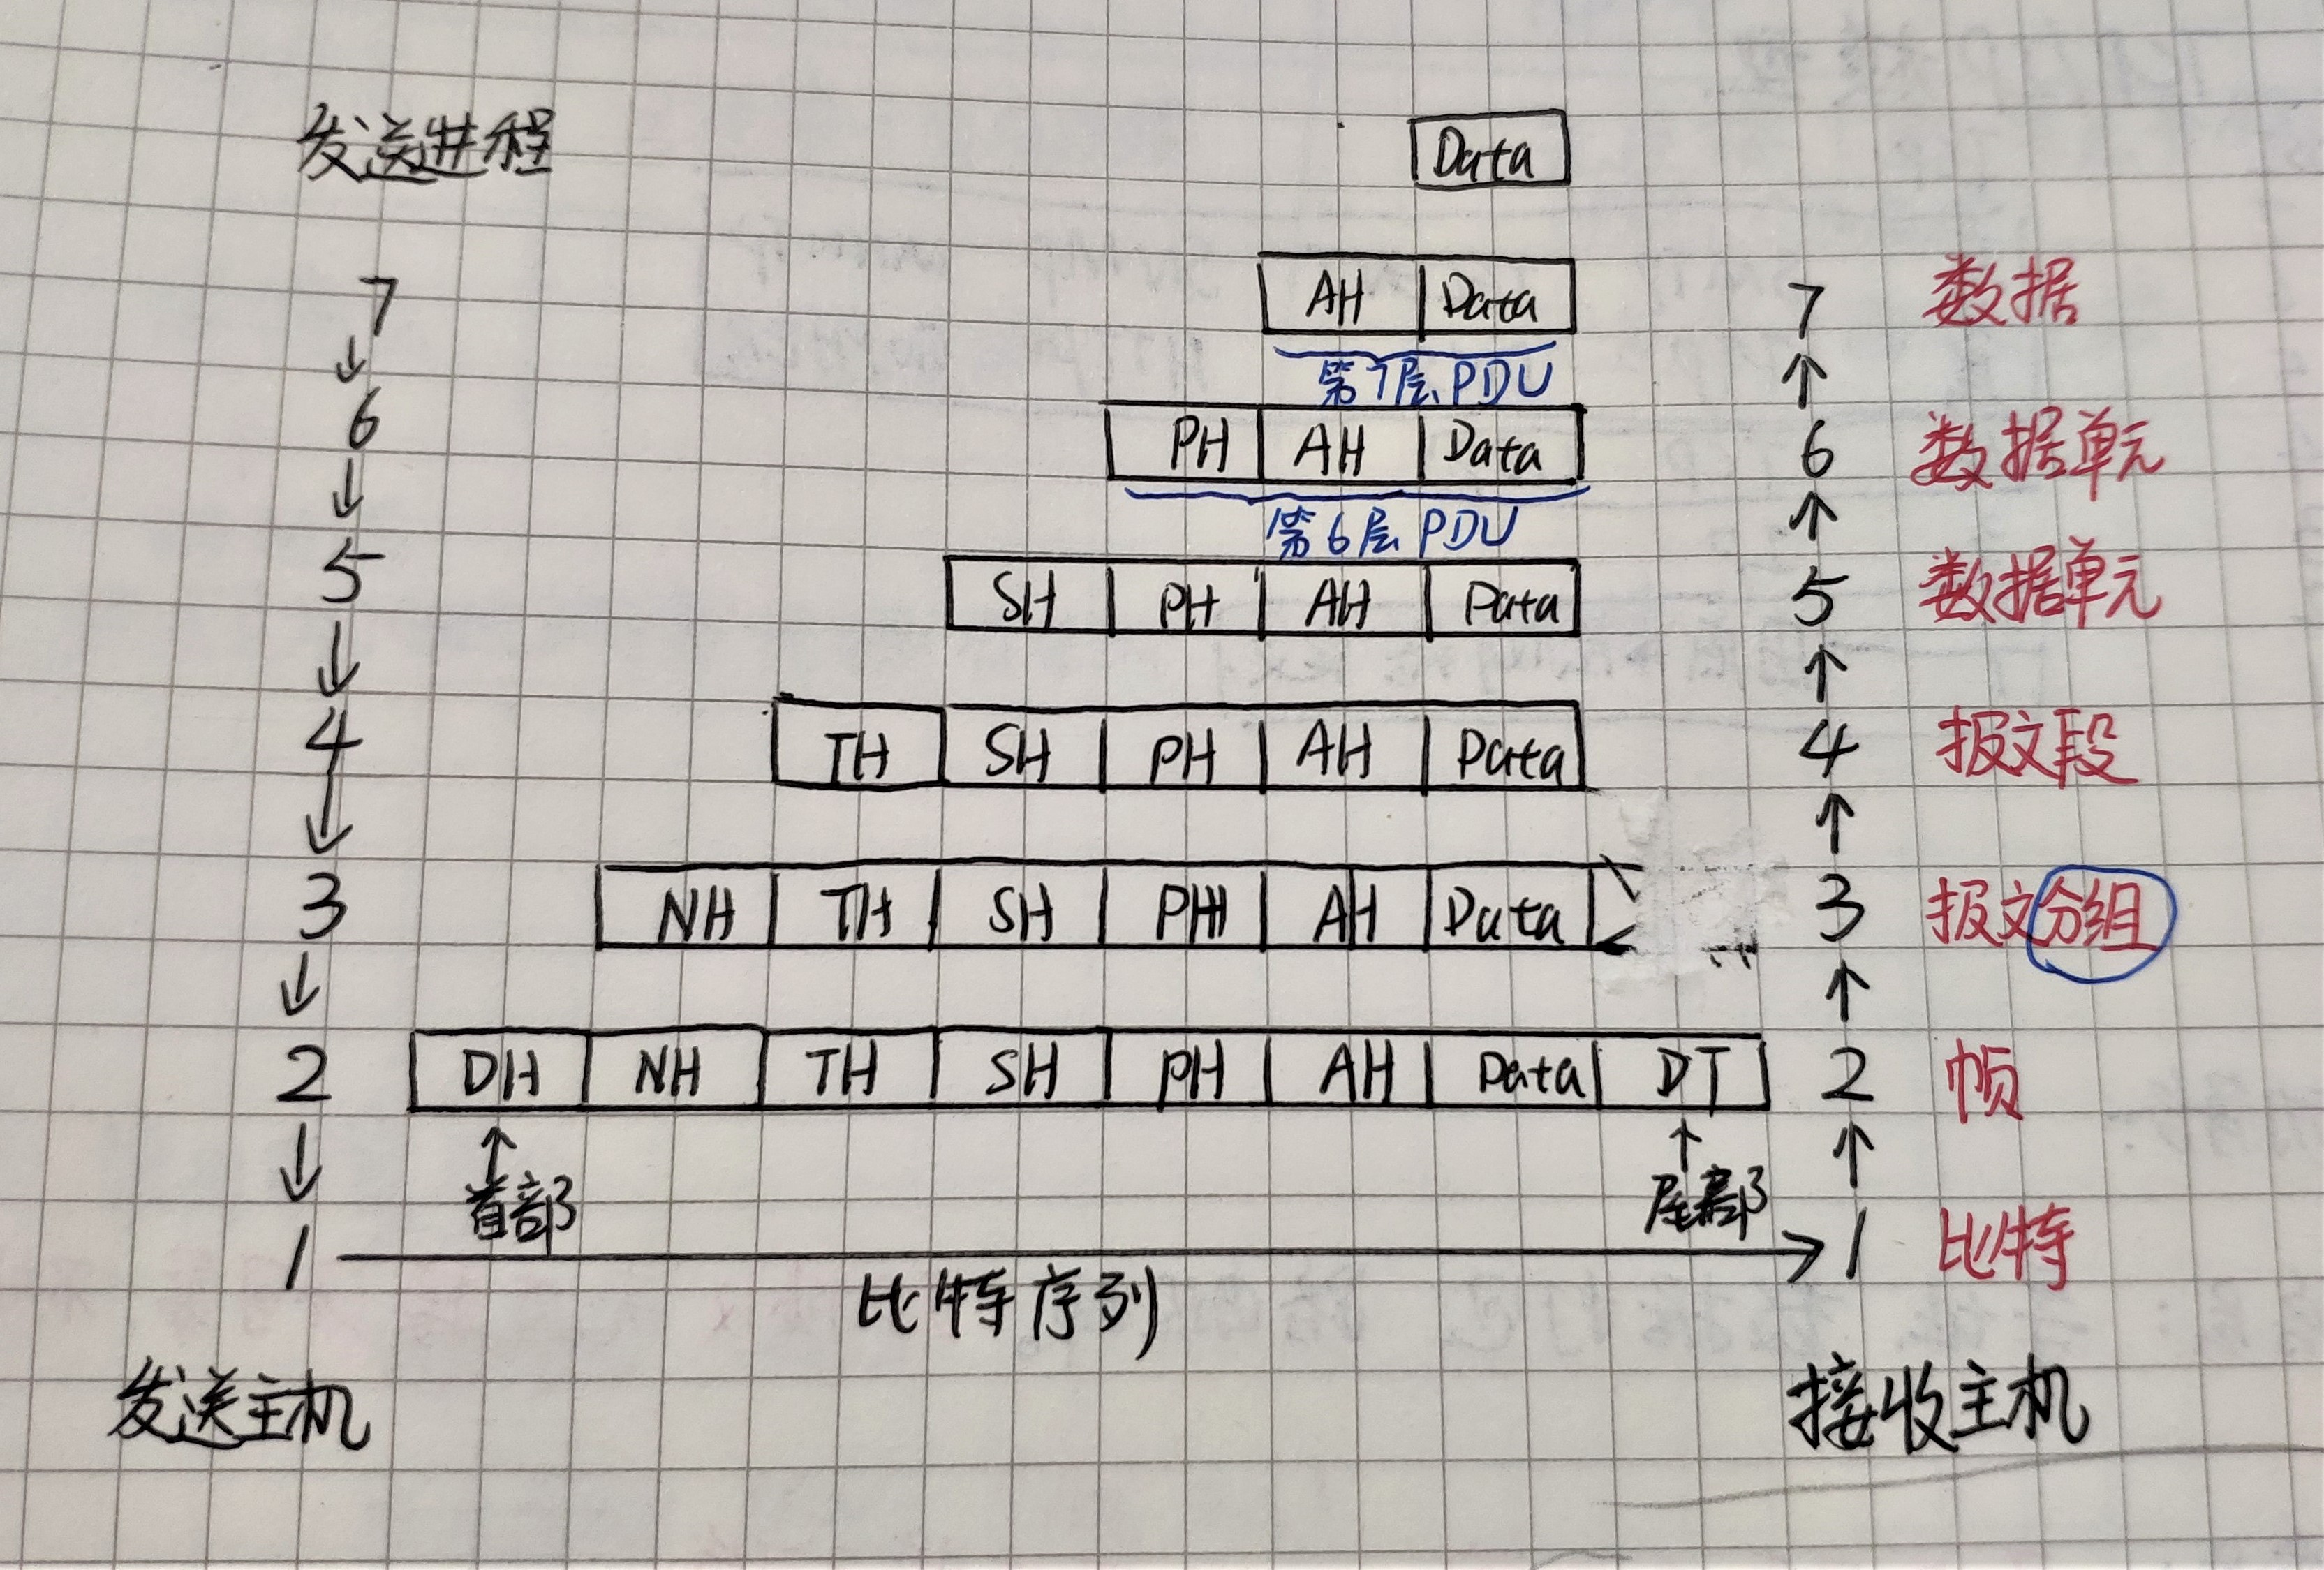 发送进程 Data
7 AH Data 7 数据
第7层PDU
6 PH AH Data 6 数据单元
第6层PDU
5 SH PH AH Data 5 数据单元
4 TH SH PH AH Data 4 报文段
3 NH TH SH PH AH Data 3 报文分组
2 DH NH TH SH PH AH Data DT 2 帧
首部 尾部
1 1 比特
比特序列
发送主机 接收主机